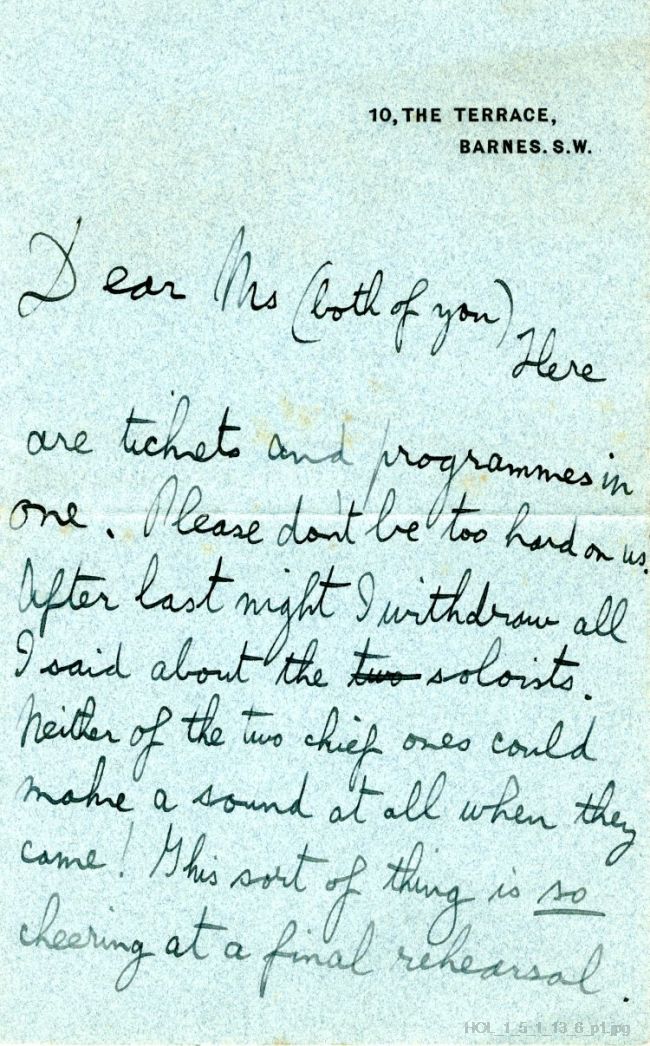 10, THE TERRACE,
BARNES. S.W.
Dear Ms (both of you)
Here
are tickets and programmes in
one. Please don't be too hard on us.
After last night I withdraw all
I said about the two soloists.
Neither of the two chief ones could
make a sound at all when they
came! This sort of thing is so
cheering at a final rehearsal.
HOL_1_5_1_13_6_p1.jpg